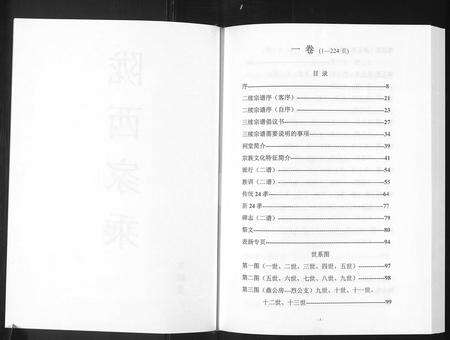 陇西家乘
一 卷 (1—224 页)
目 录
序--------8
二续宗谱序（客序）--------21
二续宗谱序（自序）--------23
三续宗谱倡议书--------27
三续宗谱需要说明的事项--------34
祠堂简介--------39
宗族文化特征简介--------41
派行（二谱）--------54
族训（二谱）--------55
传统 24 孝--------64
新 24 孝--------77
碑志（二谱）--------79
祭文--------80
表扬专页--------94
世系图
第一图（一世、二世、三世、四世、五世）--------97
第二图（五世、六世、七世、八世、九世）--------98
第三图（鼎公房—烈公支）九世、十世、十一世、
十二世、十三世--------99